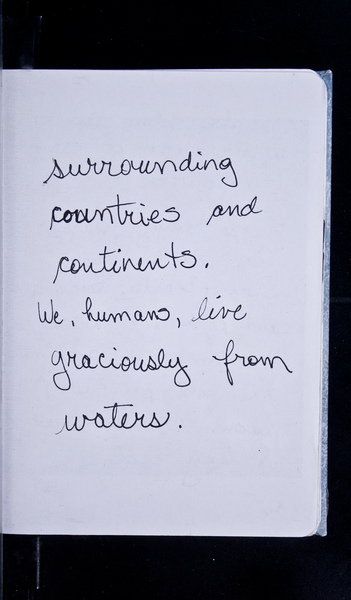 surrounding
countries and
continents.
We, humans, live
graciously from
waters.